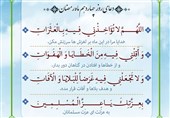 دعای روز چهاردهم ماه رمضان
اللّهُمَّ لا تُؤاخِذْنی فیهِ بِالْعَثَراتِ
خدایا مرا در این ماه بر لغزش ها سرزنش مکن
وَ أَقِلْنی فیهِ مِنَ الْخَطایا وَ الْهَفَواتِ
و از خطاها و افتادن در گناهان
وَ لا تَجْعَلْنی فیهِ غَرَضاً لِلْبَلایا وَ الآفاتِ
و هدف بلاها و آفات قرار مده
بِعِزَّتِکَ یا عِزَّ الْمُسْلِمینَ
به عزتت ای عزت مسلمانان